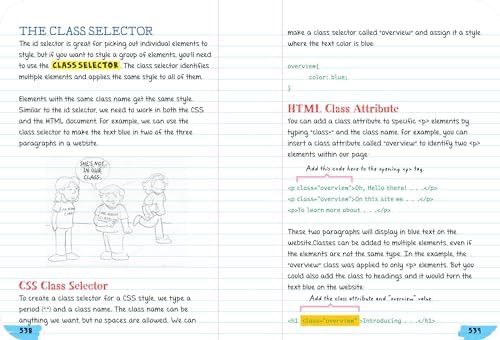 THE CLASS SELECTOR
The id selector is great for picking out individual elements to
style, but if you want to style a group of elements, you'll need
to use the CLASS SELECTOR. The class selector identifies
multiple elements and applies the same style to all of them.
Elements with the same class name get the same style.
Similar to the id selector, we need to work in both the CSS
and the HTML document. For example, we can use the
class selector to make the text blue in two of the three
paragraphs in a website.
SHE'S NOT
IN OUR
CLASS.
CSS Class Selector
To create a class selector for a CSS style, we type a
period (".") and a class name. The class name can be
anything we want, but no spaces are allowed. We can
538
make a class selector called "overview" and assign it a style
where the text color is blue:
.overview{
color: blue;
}
HTML Class Attribute
You can add a class attribute to specific <p> elements by
typing "class=" and the class name. For example, you can
insert a class attribute called "overview" to identify two <p>
elements within our page:
Add this code here to the opening <p> tag.
<p class="overview">Oh, Hello there! . . .</p>
<p class="overview">On this site me . . .</p>
<p>To learn more about . . .</p>
These two paragraphs will display in blue text on the
website.Classes can be added to multiple elements, even if
the elements are not the same type. In the example, the
"overview" class was applied to only <p> elements. But you
could also add the class to headings and it would turn the
text blue on the website:
Add the class attribute and "overview" value.
<h1 class="overview">Introducing . . .</h1>
539